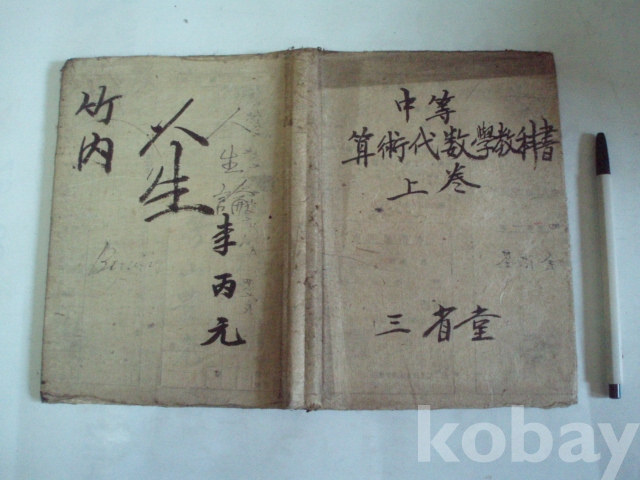 中等
算術代数學教科書
上巻
三省堂
竹内
人生
李丙元
人生論
kobay